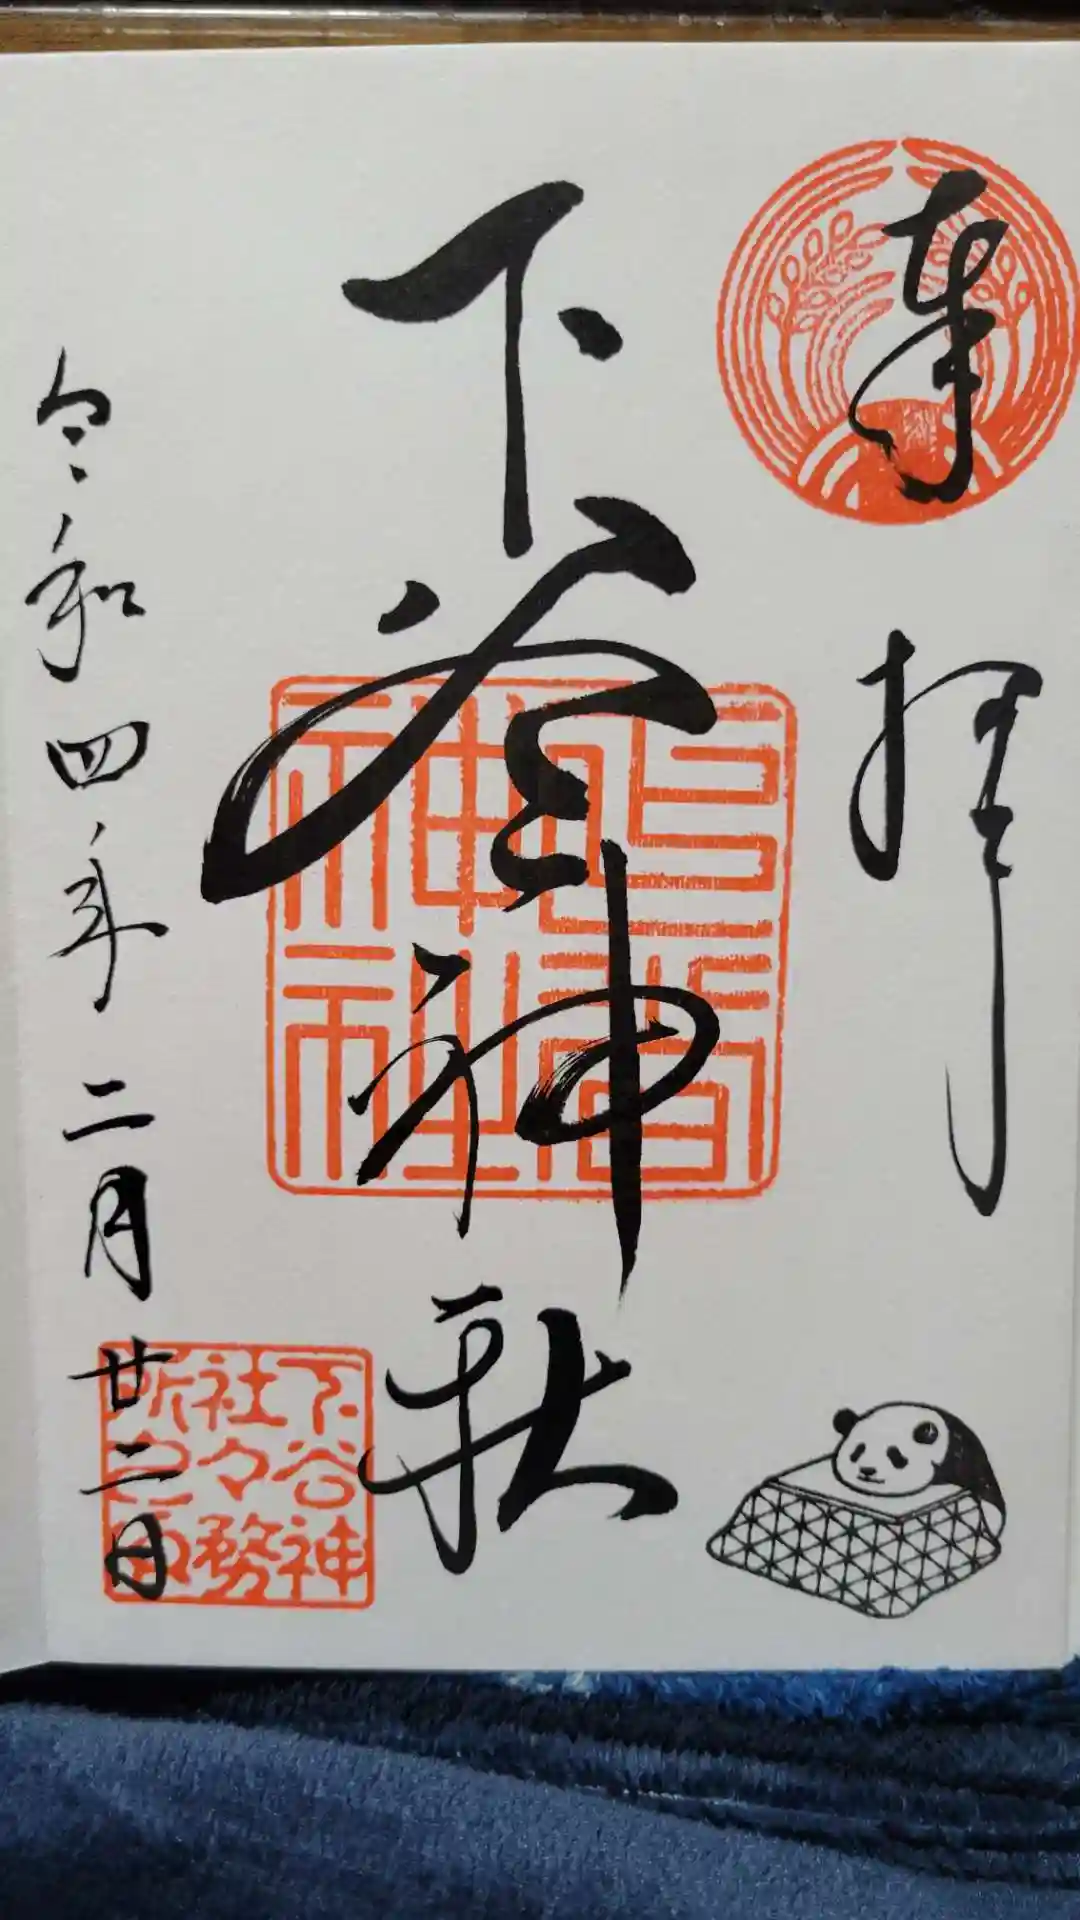 奉拝
下谷神社
令和四年二月廿二日
下谷神
社々務
神社